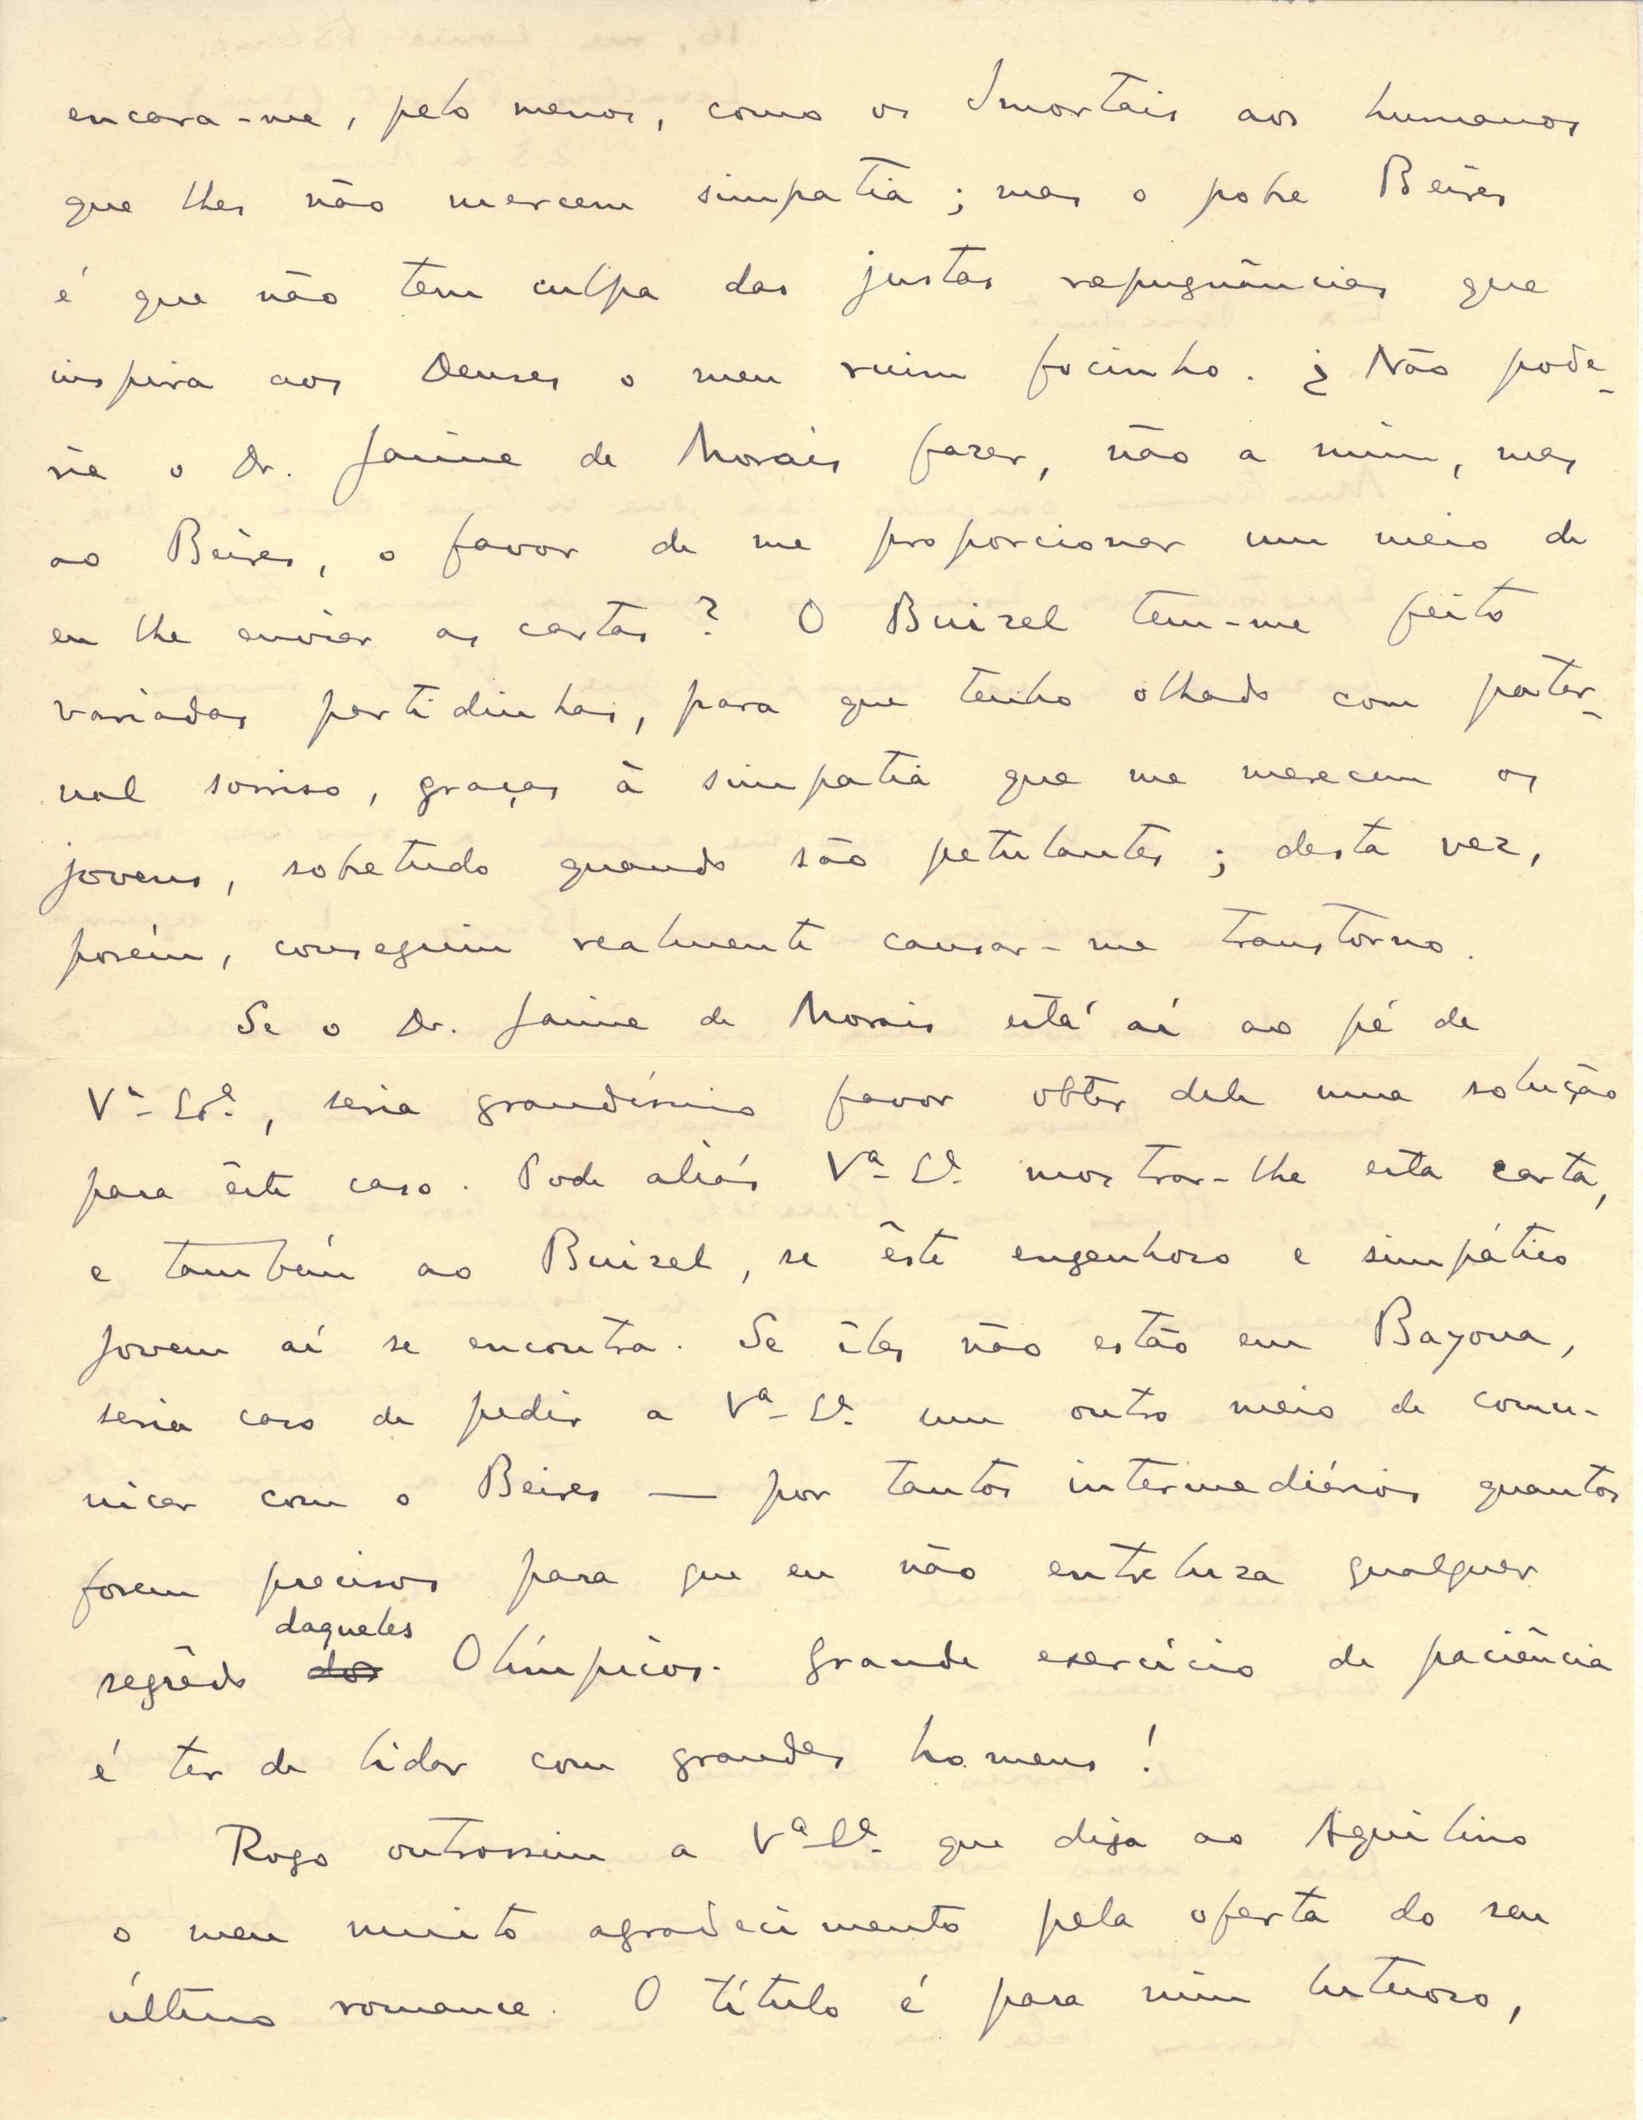 encara-me, pelo menos, como os Imortais aos humanos
que lhes não mercem simpatia; mas o pobre Beires
é que não tem culpa das justas repugnâncias que
inspira aos Deuses o meu ruim focinho. ¿ Não pode-
ria o Dr. Jaime de Morais fazer, não a mim, mas
ao Beires, o favor de me proporcionar um meio de
eu lhe enviar as cartas? O Buisel tem-me feito
variadas partidinhas, para que tenho olhado com pater-
nal sorriso, graças à simpatia que me merecem os
jovens, sobretudo quando são petulantes; desta vez,
porém, conseguiu realmente causar-me transtorno.
Se o Dr. Jaime de Morais está aí ao pé de
Vª Exª, seria grandíssimo favor obter dele uma solução
para êste caso. Pode aliás Vª Eª mostrar-lhe esta carta,
e também ao Buisel, se êste engenhoso e simpático
jovem aí se encontra. Se êles não estão em Bayona,
seria caso de pedir a Vª Eª um outro meio de comu-
nicar com o Beires — por tantos intermediários quantos
forem precisos para que eu não entreluza qualquer
daqueles
segrêdo dos Olímpicos. Grande exercício de paciência
é ter de lidar com grandes homens!
Rogo outrossim a Vª Eª que diga ao Aquilino
o meu muito agradecimento pela oferta do seu
último romance. O título é para mim lutuoso,